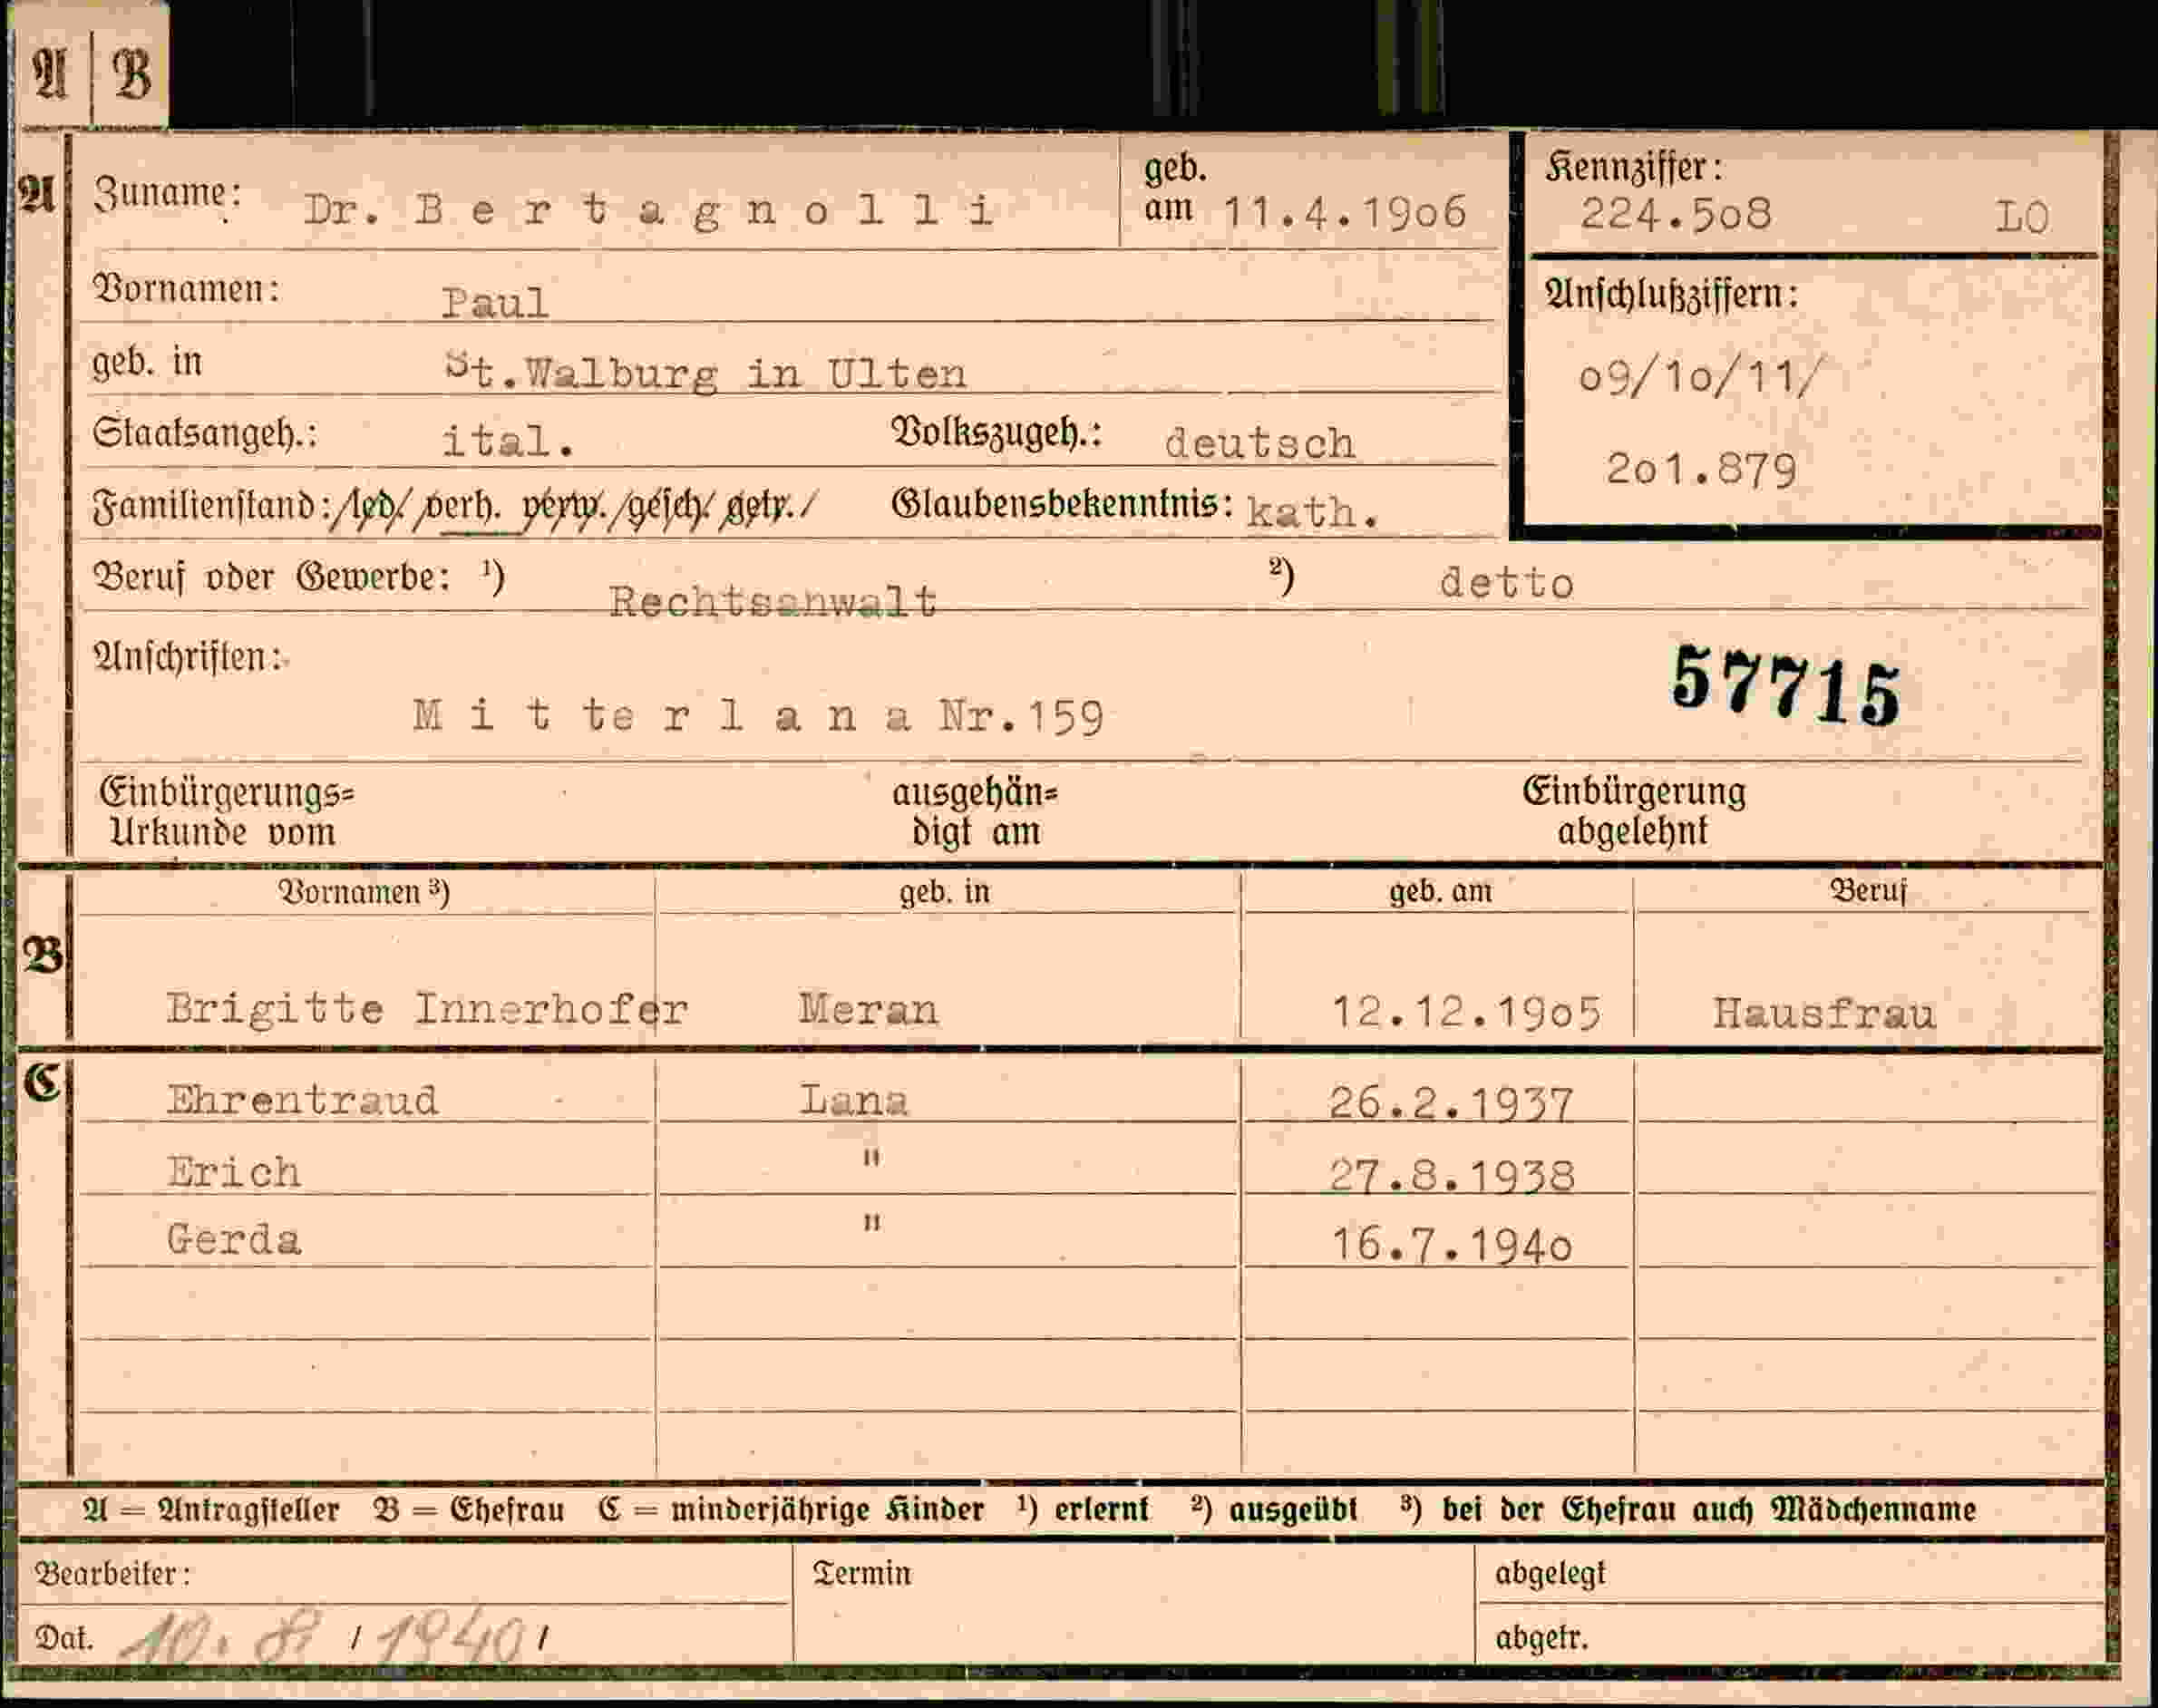 A | B
A Zuname: Dr. B e r t a g n o l l i geb. am 11.4.19o6
Kennziffer:
224.5o8 LO
Vornamen: Paul
Anschlußziffern:
geb. in St.Walburg in Ulten
o9/1o/11/
Staatsangeh.: ital. Volkszugeh.: deutsch
2o1.879
Familienstand: /led./ verh. verw./gesch/ getr./ Glaubensbekenntnis: kath.
Beruf oder Gewerbe: ¹) Rechtsanwalt ²) detto
Anschriften:
57715
M i t t e r l a n a Nr.159
Einbürgerungs= ausgehän= Einbürgerung
Urkunde vom digt am abgelehnt
Vornamen ³) geb. in geb. am Beruf
B
Brigitte Innerhofer Meran 12.12.19o5 Hausfrau
C
Ehrentraud Lana 26.2.1937
Erich " 27.8.1938
Gerda " 16.7.194o
A = Antragsteller B = Ehefrau C = minderjährige Kinder ¹) erlernt ²) ausgeübt ³) bei der Ehefrau auch Mädchenname
Bearbeiter: Termin abgelegt
Dat. 10. 8. / 1940 / abgetr.